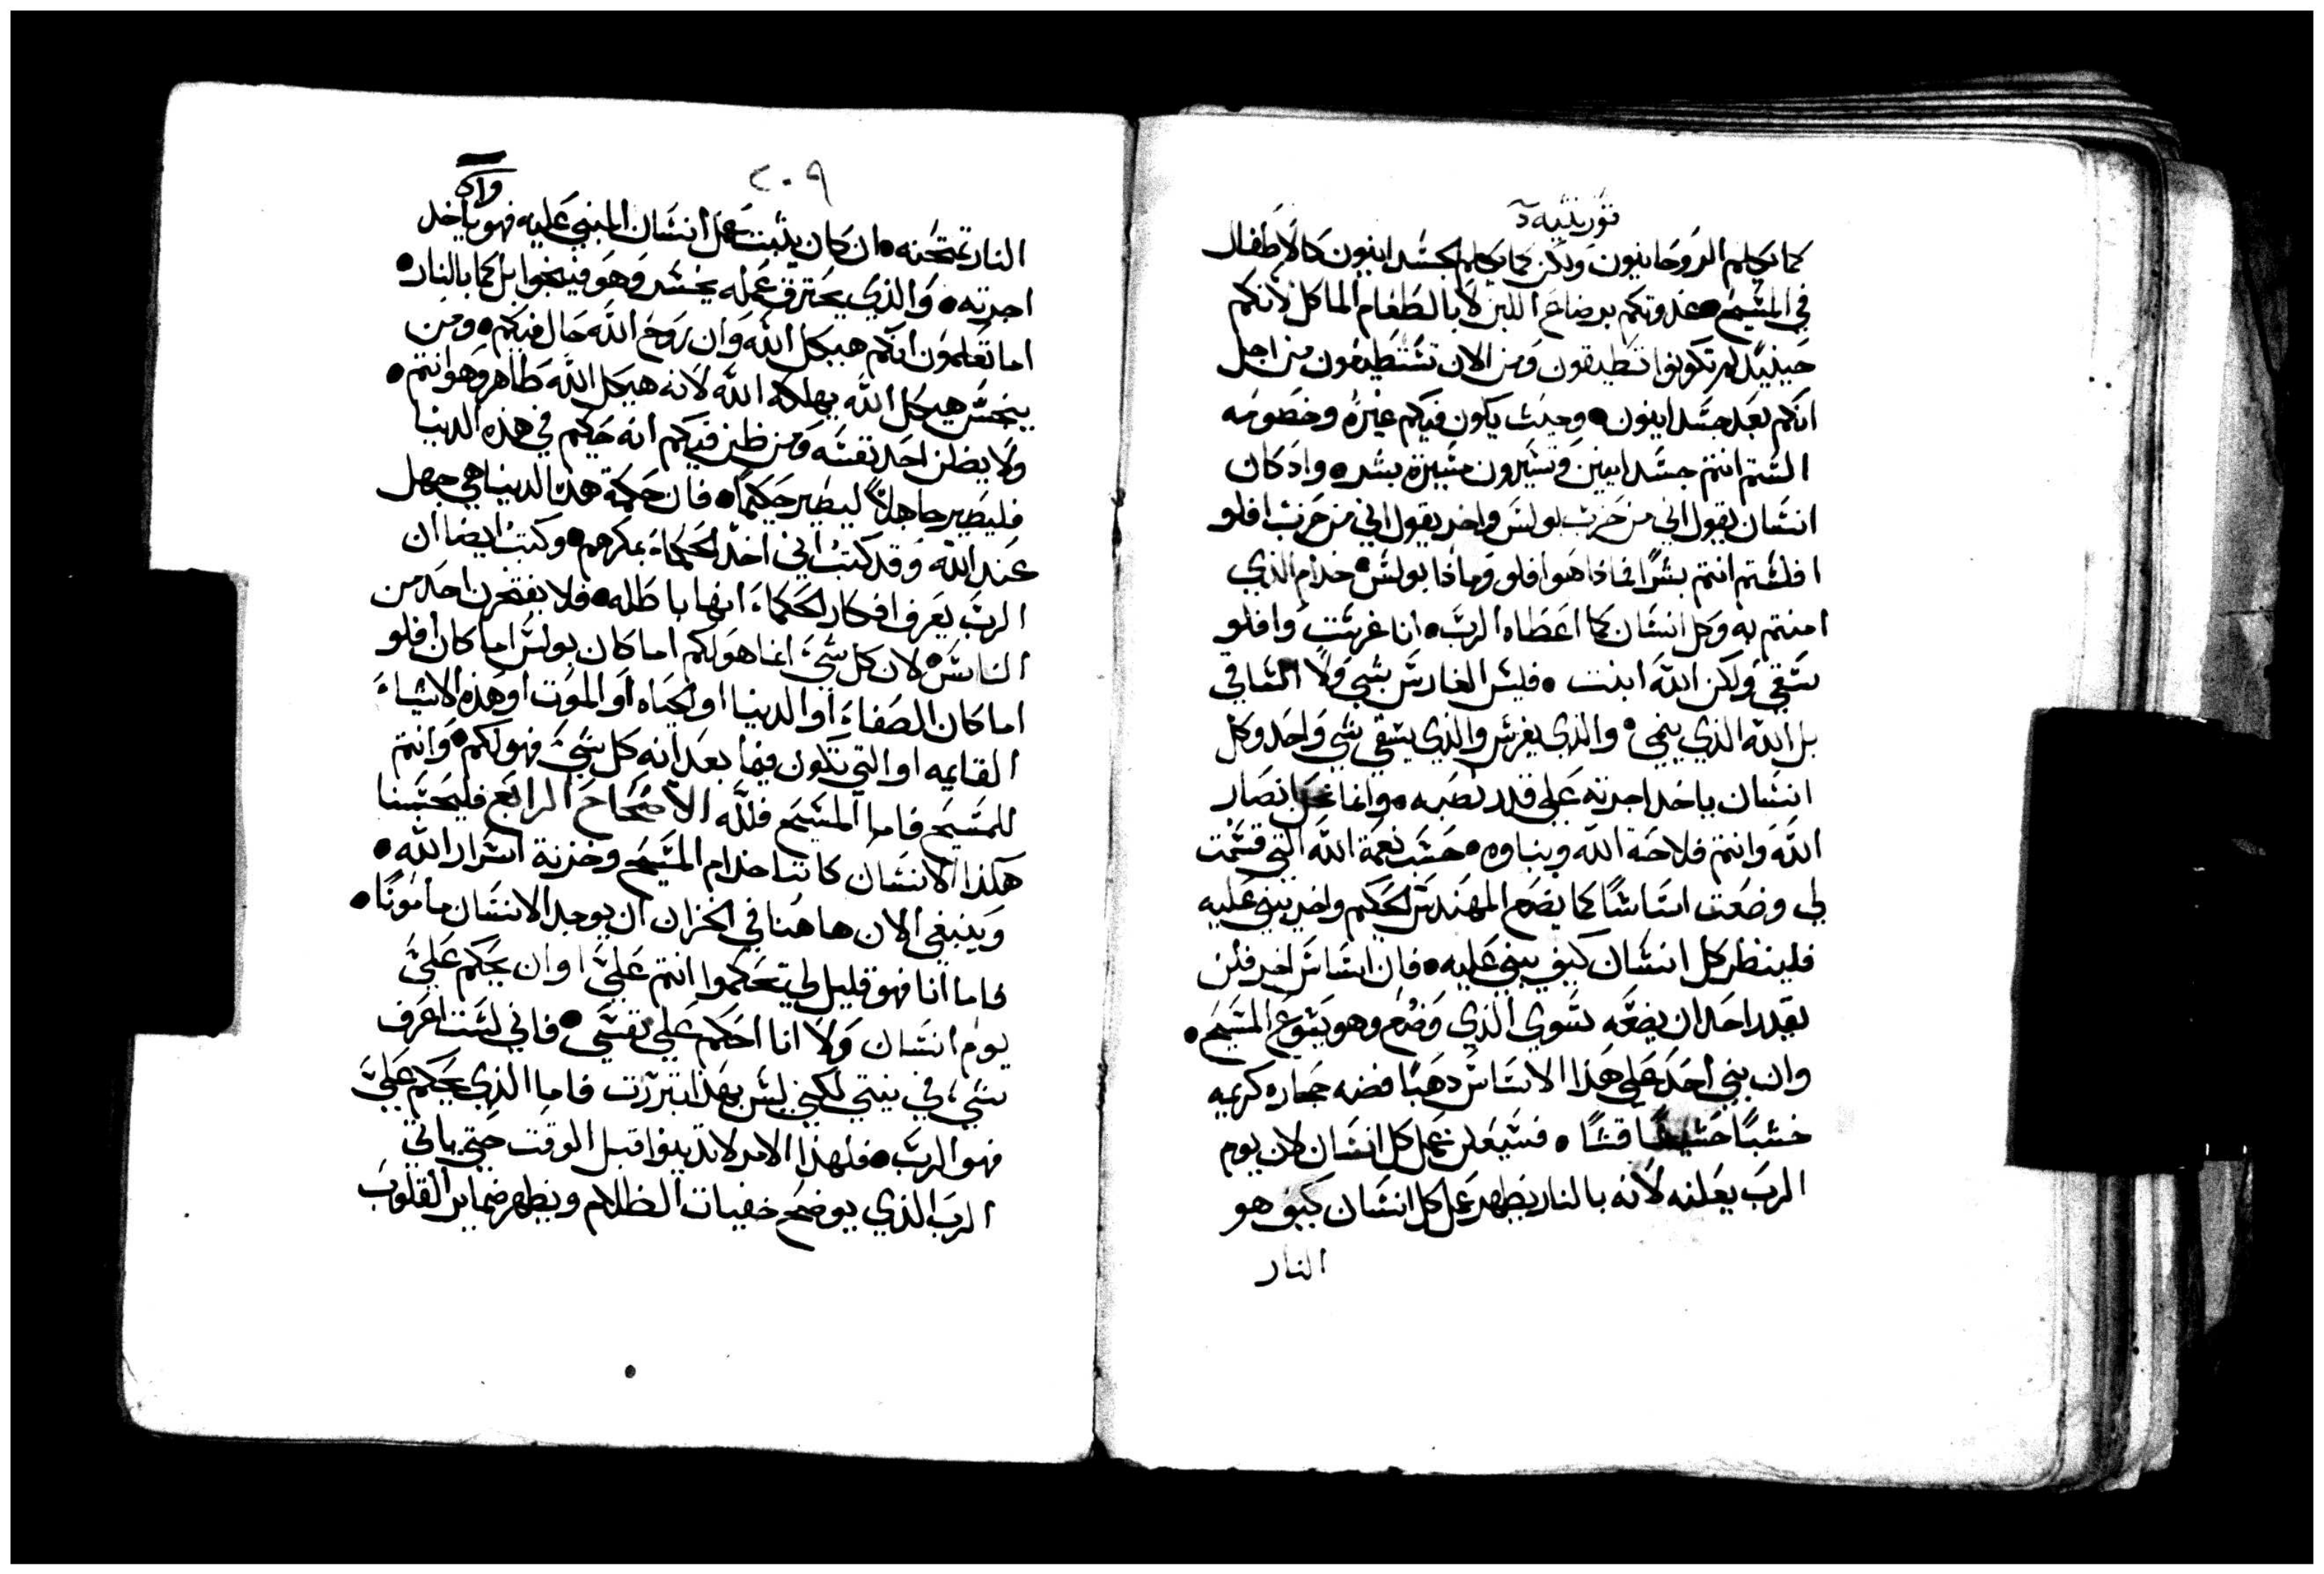 قورنتيه د
كما يكلم الروحانيون ولكن كما يكلم الجسدانيون كالاطفال
في المسيح• غدوتكم برضاع اللبن لا بالطعام الماكل لانكم
حينيد لم تكونوا تطيقون ومن الان تستطيعون من اجل
انكم بعد جسدانيون• وحيث يكون فيكم غيره وخصومه
الستم انتم جسدانيين وتسيرون مسيرة بشر• واد كان
انسان يقول اني من حزب بولس واخر يقول اني من حزب افلو
افلستم انتم بشرا فماذا هو افلو وماذا بولس• خدام الذي
امنتم به وكل انسان كما اعطاه الرب• انا غرست وافلو
سقي ولكن الله انبت • فليس الغارس بشي ولا الساقي
بل الله الذي ينمي• والذي يغرس والذي يسقي شي واحد وكل
انسان ياخد اجرته علي قدر نصبه• وانما نحن انصار
الله وانتم فلاحة الله وبناوه• حسب نعمة الله التي قسمت
لي وضعت اساسًا كما يضع المهندس الحكيم واخر يبني عليه
فلينظر كل انسان كيف يبني عليه• فان اساس اخر فلن
يقدر احد ان يضعه سوي الذي وضع وهو يسوع المسيح•
وان بني احد علي هذا الاساس دهبًا فضه حجاره كريمه
خشبًا حشيشًا قشًا • فسيعلن عمل كل انسان لان يوم
الرب يعلنه لانه بالنار يظهر عمل كل انسان كيف هو
النار
٢٠٩
النار تمتحنه• ان كان يثبت عمل انسان المبني عليه فهو ياخد
اجرته• والذي يحترق عمله يخسر وهو فينجوا بل كما بالنار•
اما تعلمون انكم هيكل الله وان روح الله حال فيكم• ومن
ينجس هيكل الله يهلكه الله لانه هيكل الله طاهر وهو انتم•
ولا يضلن احد نفسه ومن ظن فيكم انه حكيم في هذه الدنيا
فليصير جاهلاً ليصير حكيمًا• فان حكمة هذه الدنيا هي جهل
عند الله وقد كتب اني اخد الحكماء بمكرهم• وكتب ايضا ان
الرب يعرف افكار الحكماء انها باطله• فلا يفتخرن احد من
الناس• لان كل شيء انما هو لكم اما كان بولس اما كان افلو
اما كان الصفاء او الدنيا او الحياه او الموت او هذه الاشياء
القايمه او التي تكون فيما بعد انه كل شيء فهو لكم• وانتم
للمسيح فاما المسيح فلله الاصحاح الرابع فليحسبنا
هكذا الانسان كاننا خدام المسيح وخزنة اسرار الله•
وينبغي الان هاهنا في الخزان ان يوجد الانسان مامونًا•
فاما انا فهو قليل لي تحكموا انتم عليّ او ان يحكم عليّ
يوم انسان ولا انا احكم علي نفسي• فاني لست اعرف
شيء في نيتي لكني ليس بهذا تبررت فاما الذي يحكم عليّ
فهو الرب• فلهذا الامر لا تدينوا قبل الوقت حتي ياتي
الرب الذي يوضح خفيات الظلام ويظهر ضماير القلوب